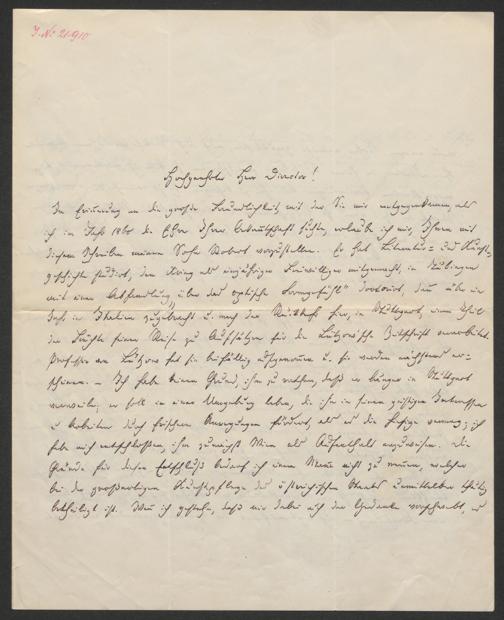 J. No 21.910
Hochgeehrter Herr Director!
In Erinnerung an die große Freundlichkeit, mit der Sie mir entgegenkamen, als
ich im Jahr 186 die Ehre Ihrer Bekanntschaft hatte, erlaube ich mir, Ihnen mit
diesem Schreiben meinen Sohn Robert vorzustellen. Er hat Literatur= und Kunst=
geschichte studirt, den Krieg als einjähriger Freiwilliger mitgemacht, in Tübingen
mit einer Abhandlung „über das optische Formgefühl" doctorirt, dann über ein
Jahr in Italien zugebracht u. nach der Rückkehr hier, in Stuttgart, einen Theil
der Früchte seiner Reise zu Aufsätzen für die Lützow'sche Zeitschrift verarbeitet.
Professor von Lützow hat sie beifällig aufgenommen u. sie werden nächstens er=
scheinen. – Ich habe keinen Grund, ihm zu rathen, daß er länger in Stuttgart
verweile; er soll in einer Umgebung leben, die ihn in seinen geistigen Interessen
u. Arbeiten durch frischere Anregungen fördert, als es die hiesige vermag; ich
habe mich entschlossen, ihm zunächst Wien als Aufenthalt anzuweisen. Die
Gründe für diesen Entschluß brauch ich einem Manne nicht zu nennen, welcher
bei der großartigen Kunstpflege des östreichischen Staates unmittelbar thätig
betheiligt ist. Wenn ich gestehe, daß mir dabei auch der Gedanke vorschwebt, es